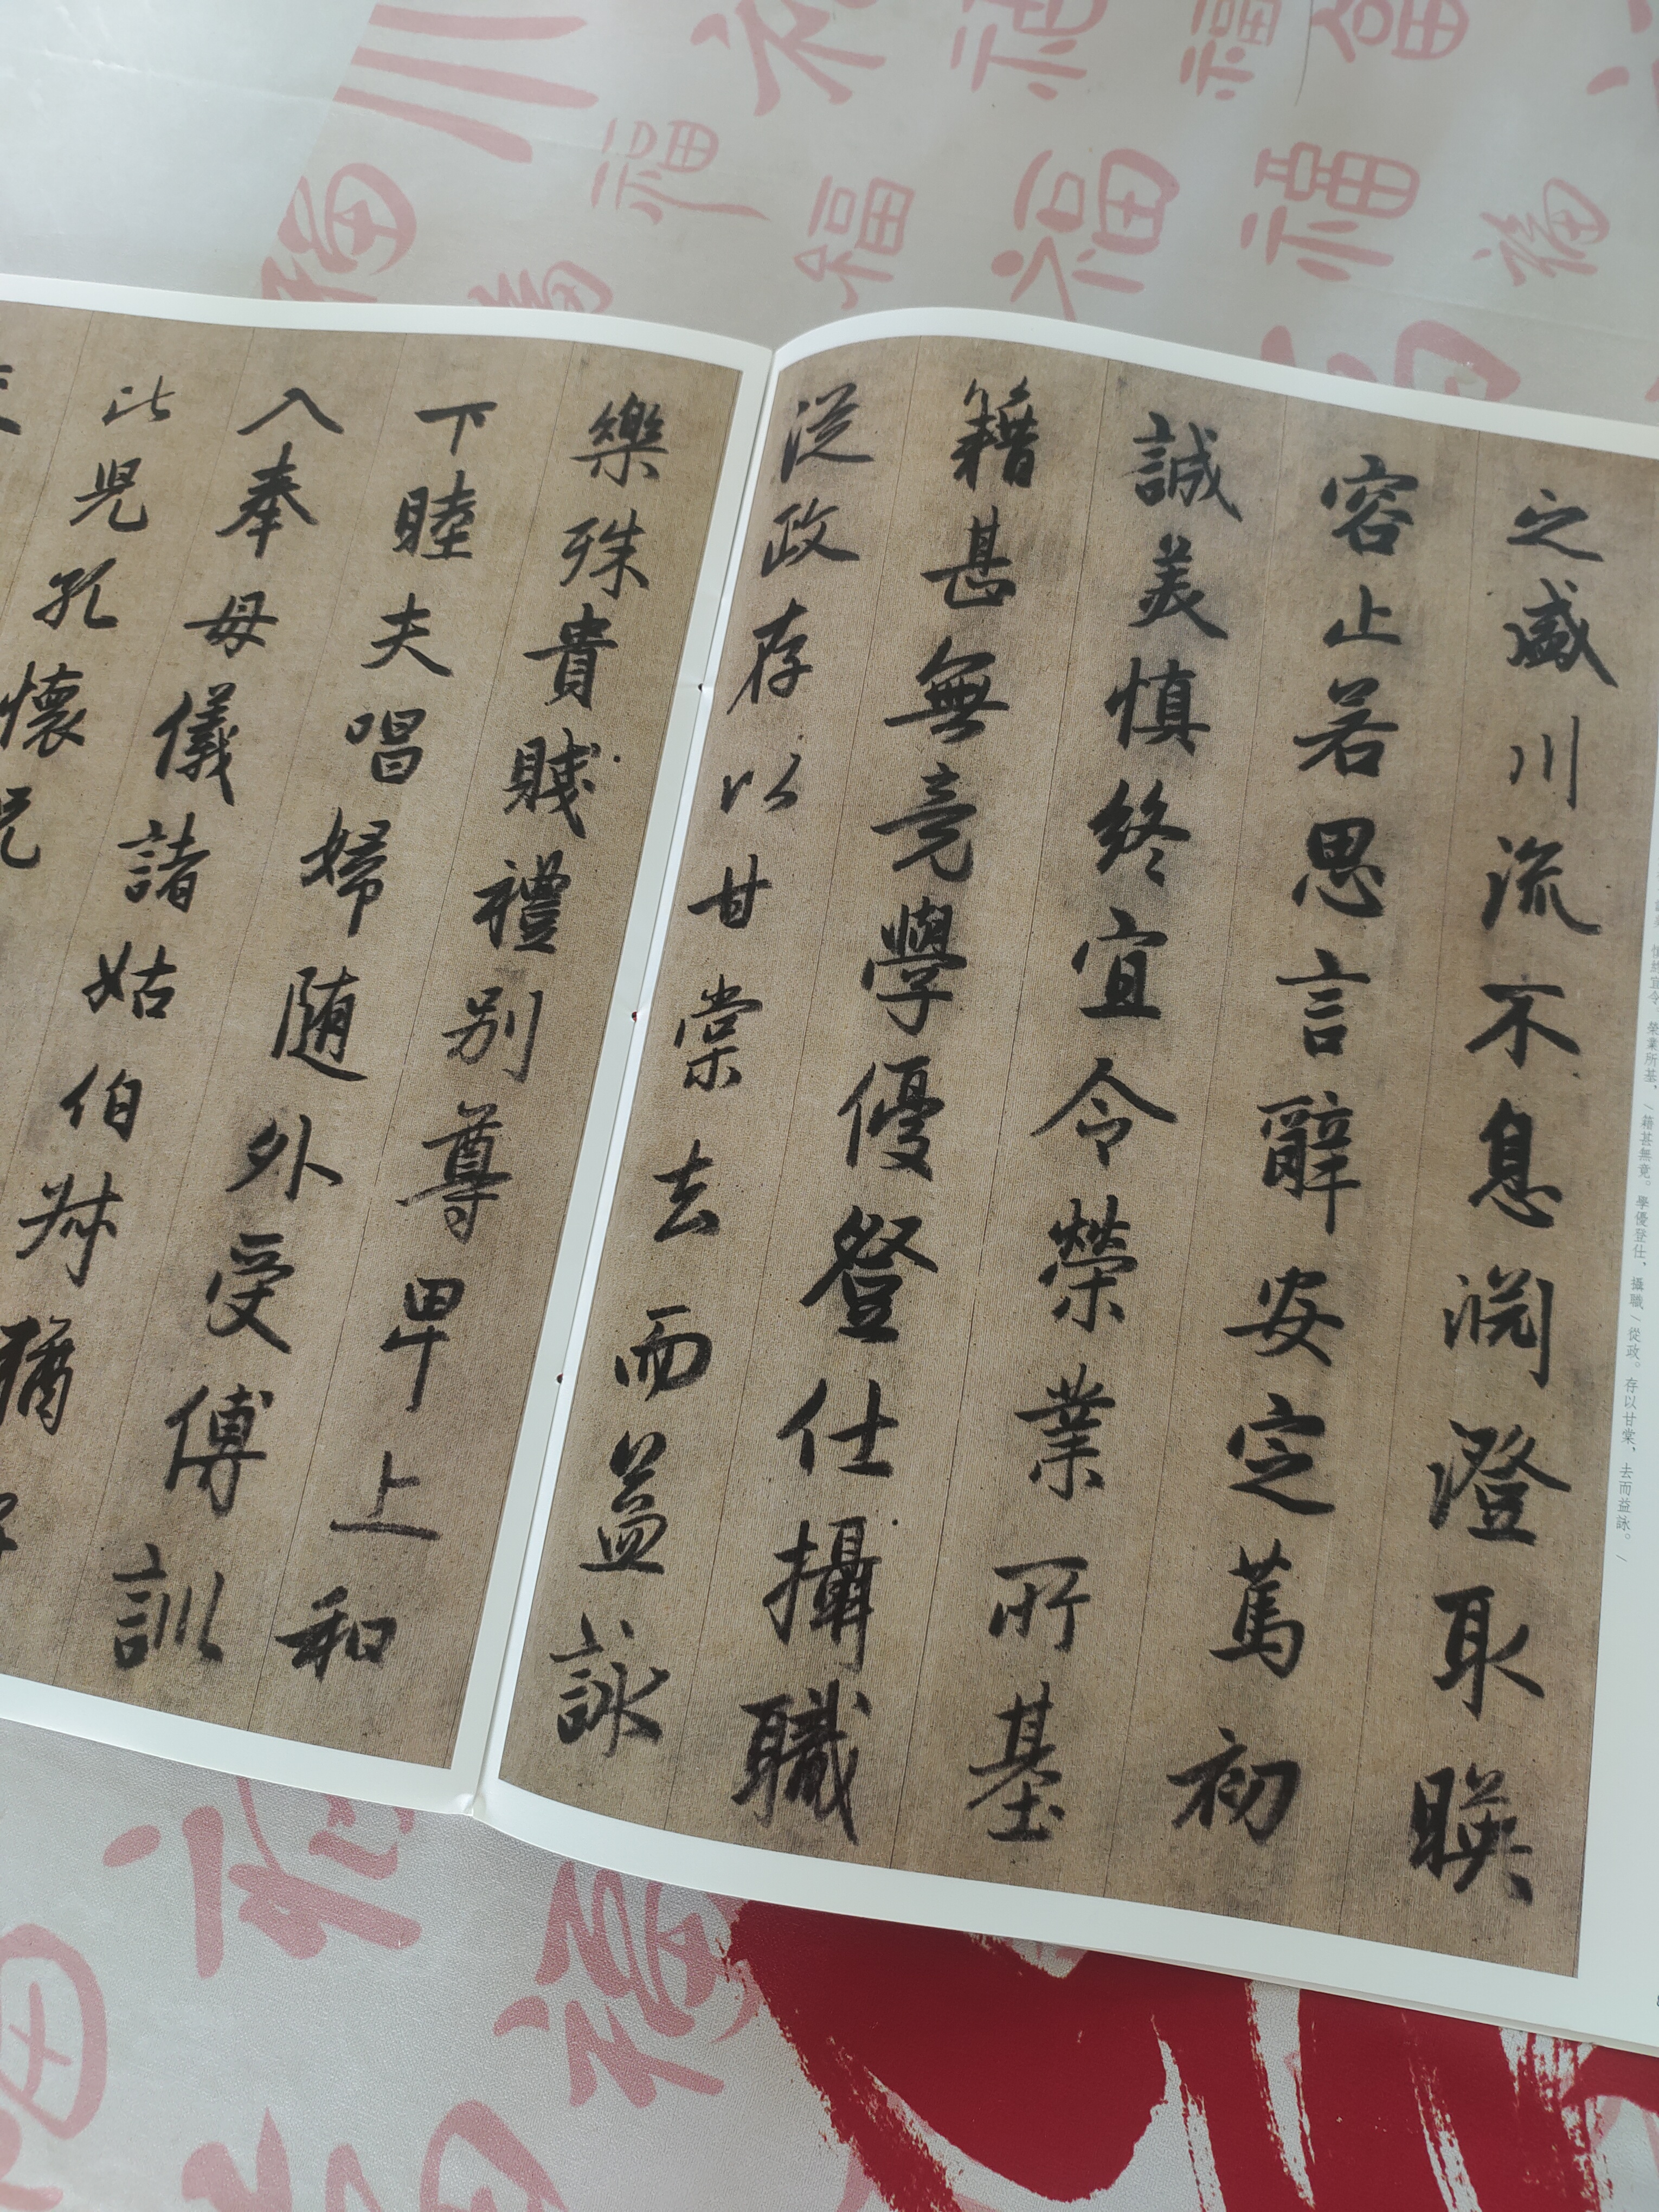 之盛川流不息渊澄取暎
容止若思言辭安定篤初
誠美慎終宜令榮業所基
籍甚無竟學優登仕攝職
從政存以甘棠去而益詠
樂殊貴賤禮別尊卑上
下睦夫唱婦随外受傅訓
入奉母儀諸姑伯叔猶
比兒孔懷兄
慎終宜令、榮業所基、/籍甚無竟。學優登仕、攝職/從政。存以甘棠、去而益詠。/
和
福
福
福
福
福
福